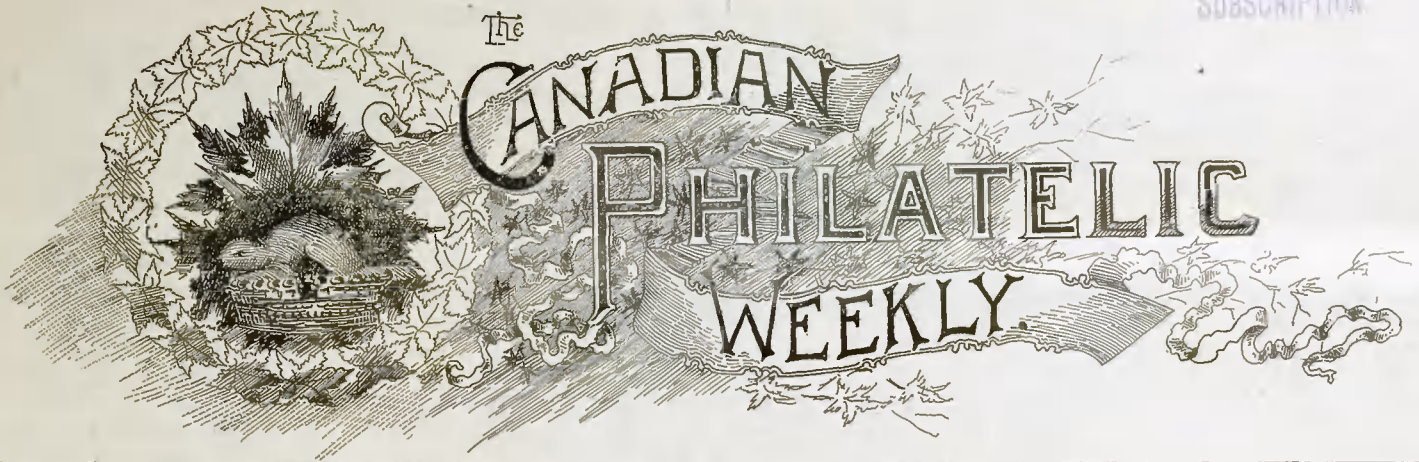 SUBSCRIPTION
The
CANADIAN
PHILATELIC
WEEKLY.